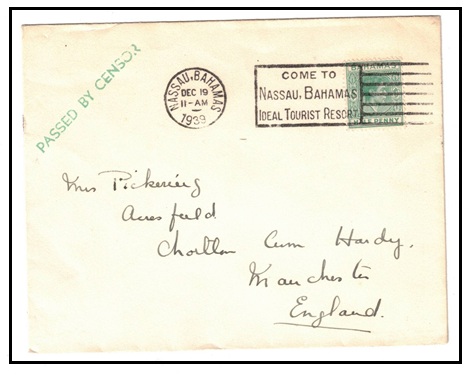 PASSED BY CENSOR
NASSAU, BAHAMAS
DEC 19
11-AM
1939
COME TO
NASSAU, BAHAMAS
IDEAL TOURIST RESORT
BAHAMAS
HALF PENNY
Mrs Pickering
Acresfield
Chorlton Cum Hardy.
Manchester
England.